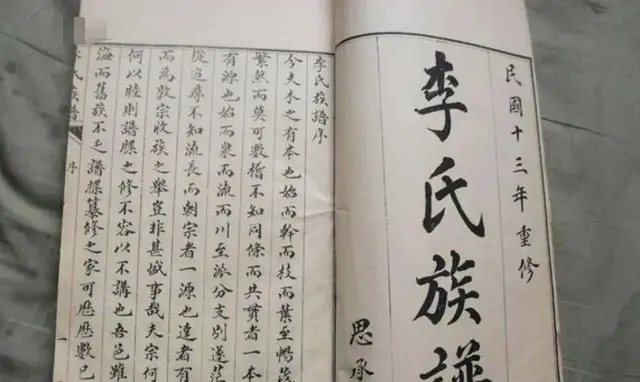 民國十三年重修
李氏族譜
思承
李氏族譜序
今夫木之有本也始而幹而枝而葉至暢茂
繁然而莫可數稽不知同條而共貫者一本
有源也始而泉而流而川至派分支别
從追尋不知流長而朝宗者一源也達者有
而為敦宗收族之舉豈非甚盛事哉夫宗何
何以睦則譜牒之修不容以不講也吾邑雖
海而舊族不乏譜牒纂修之家可歷歷數已
氏族譜
序
一